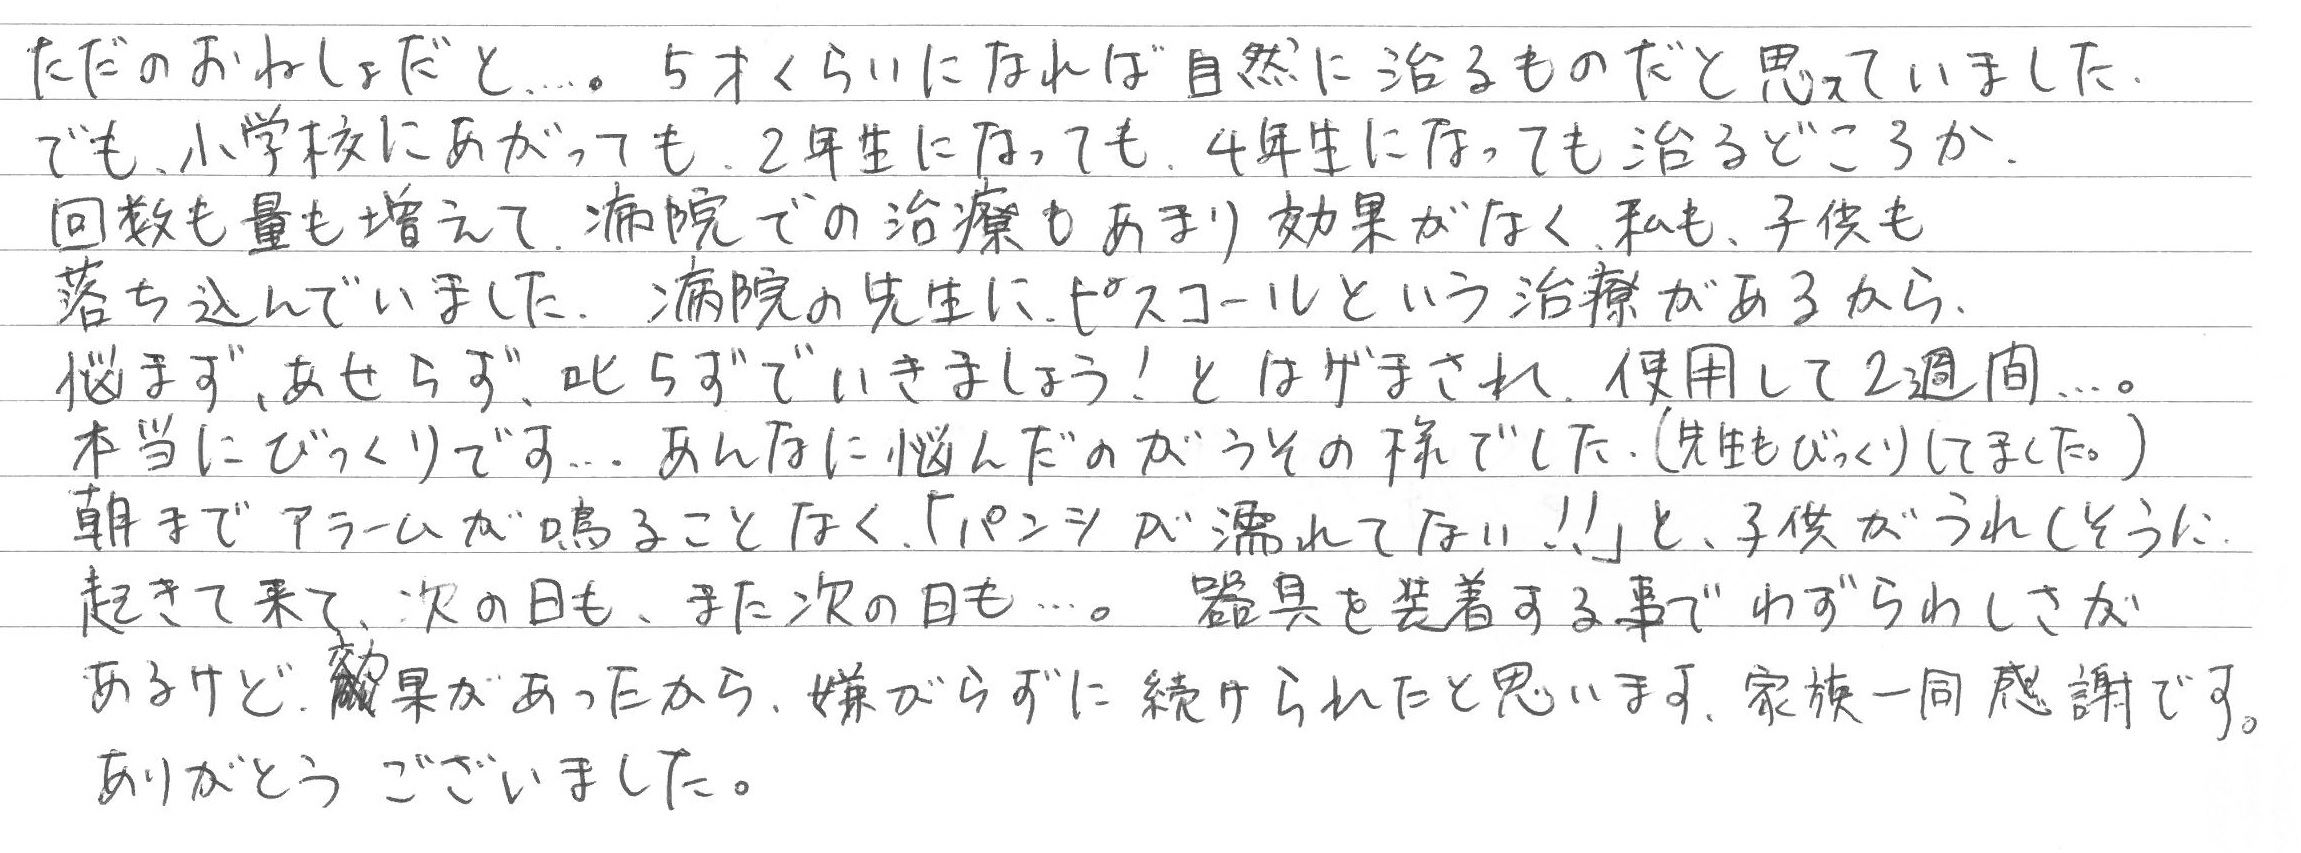 ただのおねしょだと…。 5才くらいになれば自然に治るものだと思っていました.
でも、小学校にあがっても、2年生になっても、4年生になっても治るどころか、
回数も量も増えて、病院での治療もあまり効果がなく、私も、子供も
落ち込んでいました。 病院の先生に、ピスコールという治療があるから、
悩まず、あせらず、叱らずでいきましょう！とはげまされ、使用して2週間…。
本当にびっくりです…。あんなに悩んだのがうその様でした。(先生もびっくりしてました。)
朝までアラームが鳴ることなく、「パンツが濡れてない!!」と、子供がうれしそうに
起きて来て、次の日も、また次の日も…。 器具を装着する事でわずらわしさが
あるけど、効果があったから、嫌がらずに続けられたと思います、家族一同感謝です。
ありがとうございました。